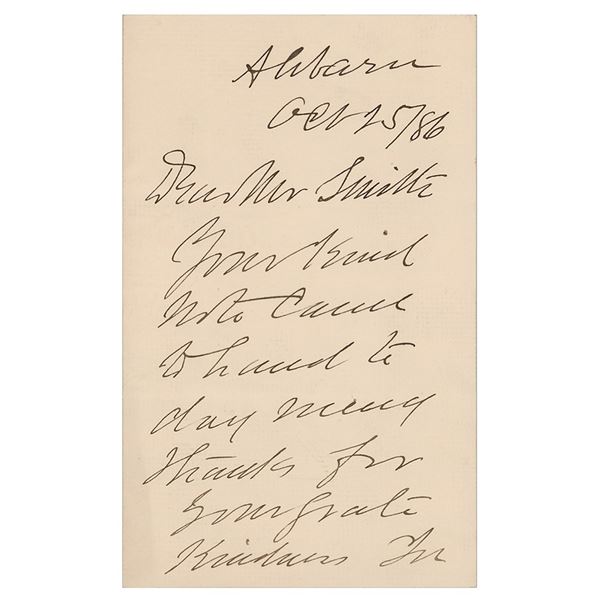 Auburn
Oct 25/86
Dear Mr Smith
Your kind
note came
to hand to
day many
thanks for
your grate
kindness In